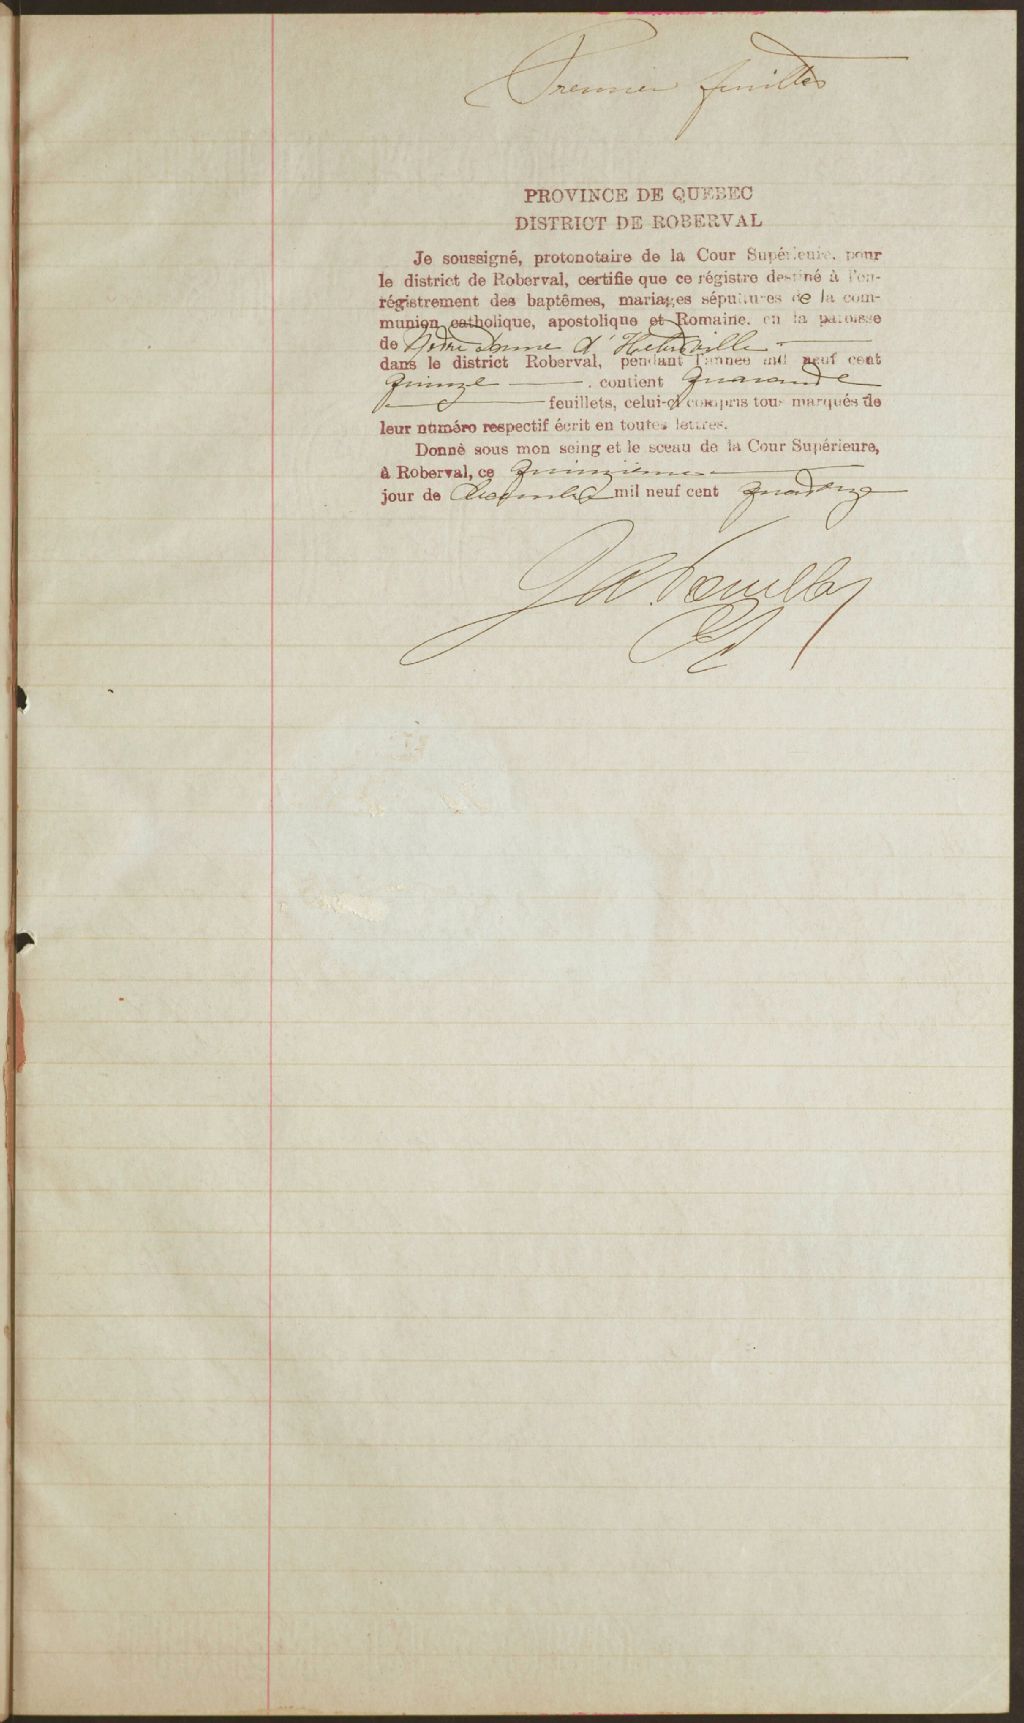 Premier feuillet
PROVINCE DE QUEBEC
DISTRICT DE ROBERVAL
Je soussigné, protonotaire de la Cour Supérieure, pour
le district de Roberval, certifie que ce régistre destiné à l'en-
régistrement des baptêmes, mariages sépultures de la com-
munion catholique, apostolique et Romaine, en la paroisse
de Notre Dame d'Hebertville
dans le district Roberval, pendant l'année mil neuf cent
quinze contient quarante
feuillets, celui-ci compris tous marqués de
leur numéro respectif écrit en toutes lettres.
Donné sous mon seing et le sceau de la Cour Supérieure,
à Roberval, ce quinzieme
jour de decembre mil neuf cent quatorze